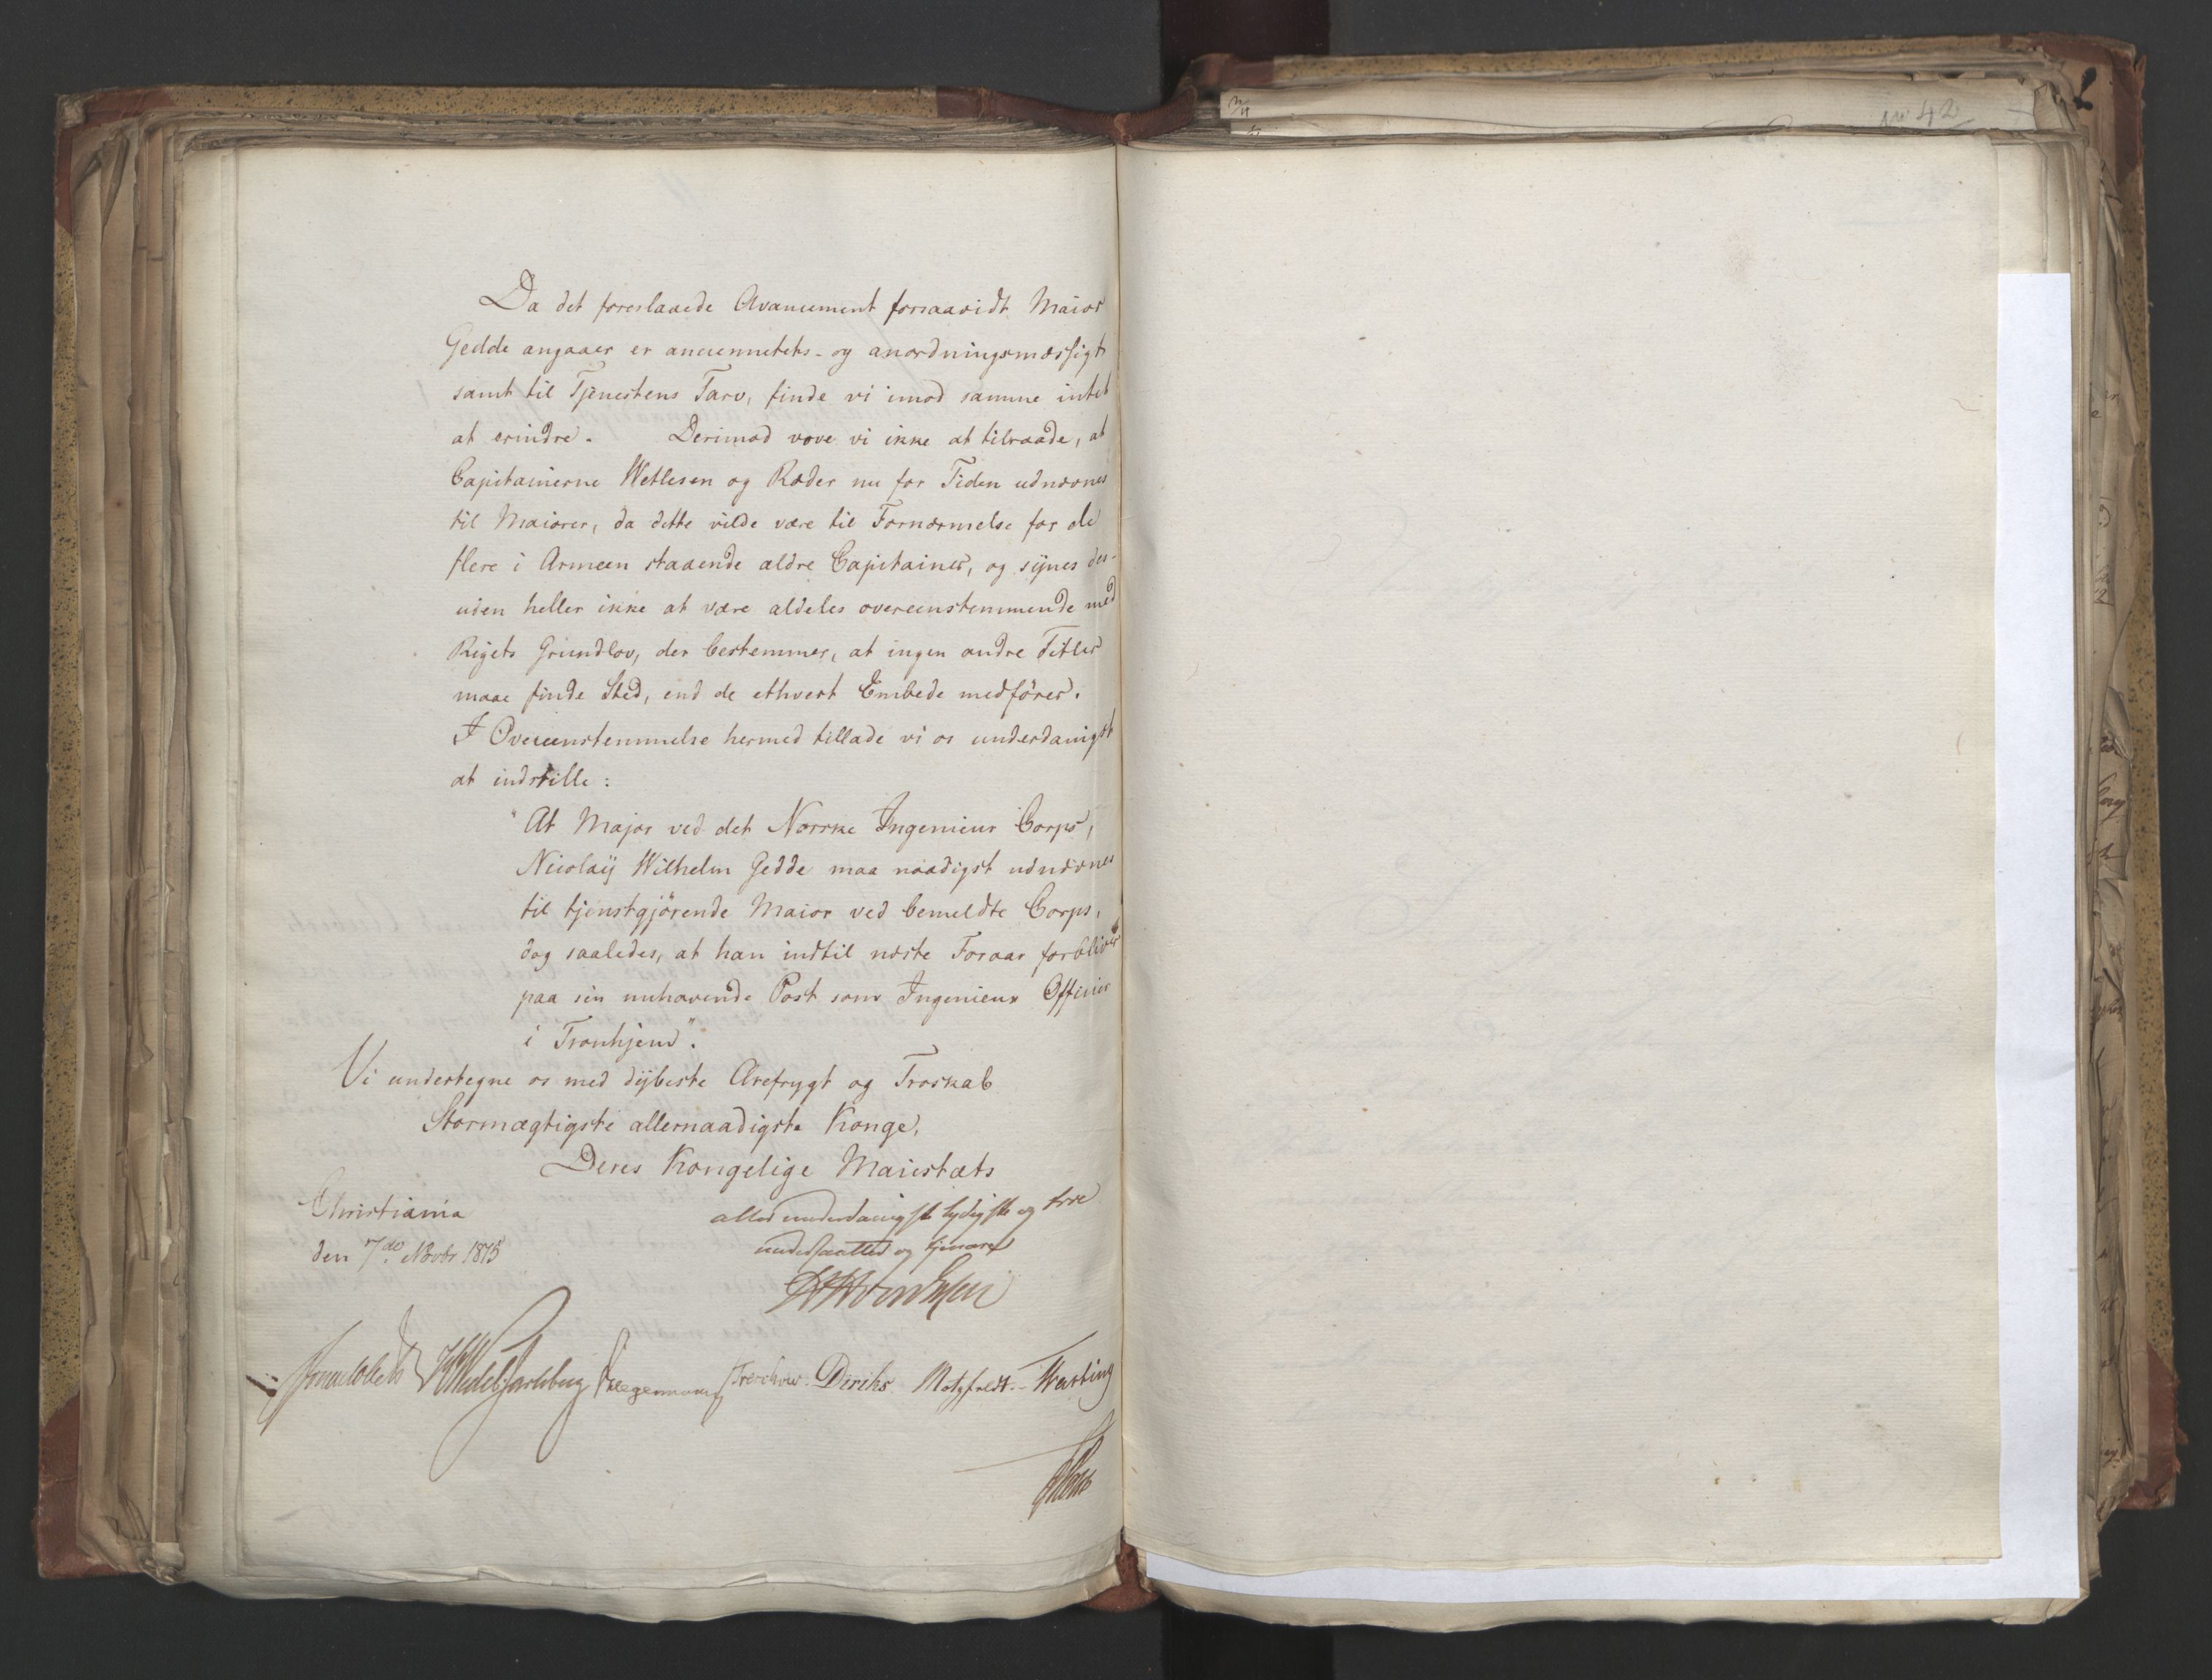 No 42
Da det foreslaaede Avancement forsaavidt Maior
Gedde angaaer er anciennitets- og anordningsmæssigt
samt til Tjenestens Tarv, finde vi imod samme intet
at erindre. Derimod vove vi ikke at tilraade, at
Capitainerne Wetlesen og Ræder nu for Tiden udnævnes
til Maiorer, da dette vilde være til Fornærmelse for de
flere i Armeen staaende ældre Capitainer, og synes des-
uden heller ikke at være aldeles overeenstemmende med
Rigets Grundlov, der bestemmer, at ingen andre Titler
maae finde Sted, end de ethvert Embede medfører.
I Overeenstemmelse hermed tillade vi os underdanigst
at indstille:
"At Major ved det Norske Ingenieur Corps,
Nicolaÿ Wilhelm Gedde maa naadigst udnævnes
til tjenstgjörende Maior ved bemeldte Corps,
dog saaledes, at han indtil næste Foraar forbliver
paa sin nuhavende Post som Ingenieur Officier
i Tronhjem".
Vi undertegne os med dÿbeste Ærefrygt og Troskab
Stormægtigste allernaadigste Konge,
Deres Kongelige Maiestæts
Christiania
allerunderdanigste lydigste og troe
den 7de Novbr 1815
undersaatter og tjenere
HHvonEssen
Jonas Collett HWedelJarlsberg Hegermann Treschow. Diriks Motzfeldt. - Wasting